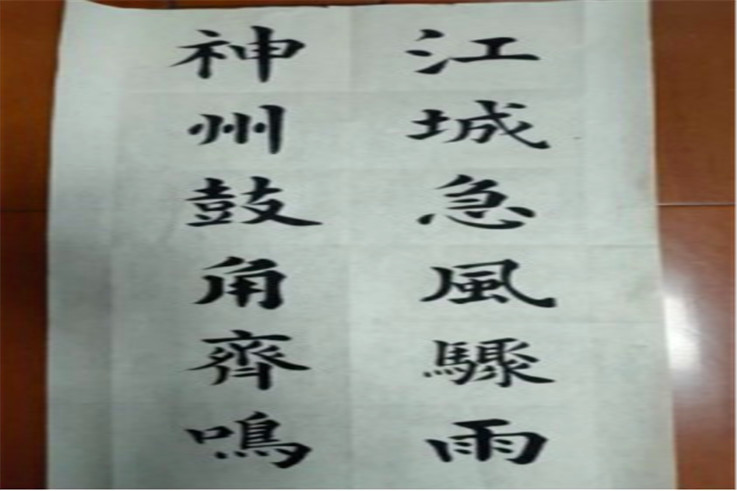 江城急風驟雨
神州鼓角齊鳴